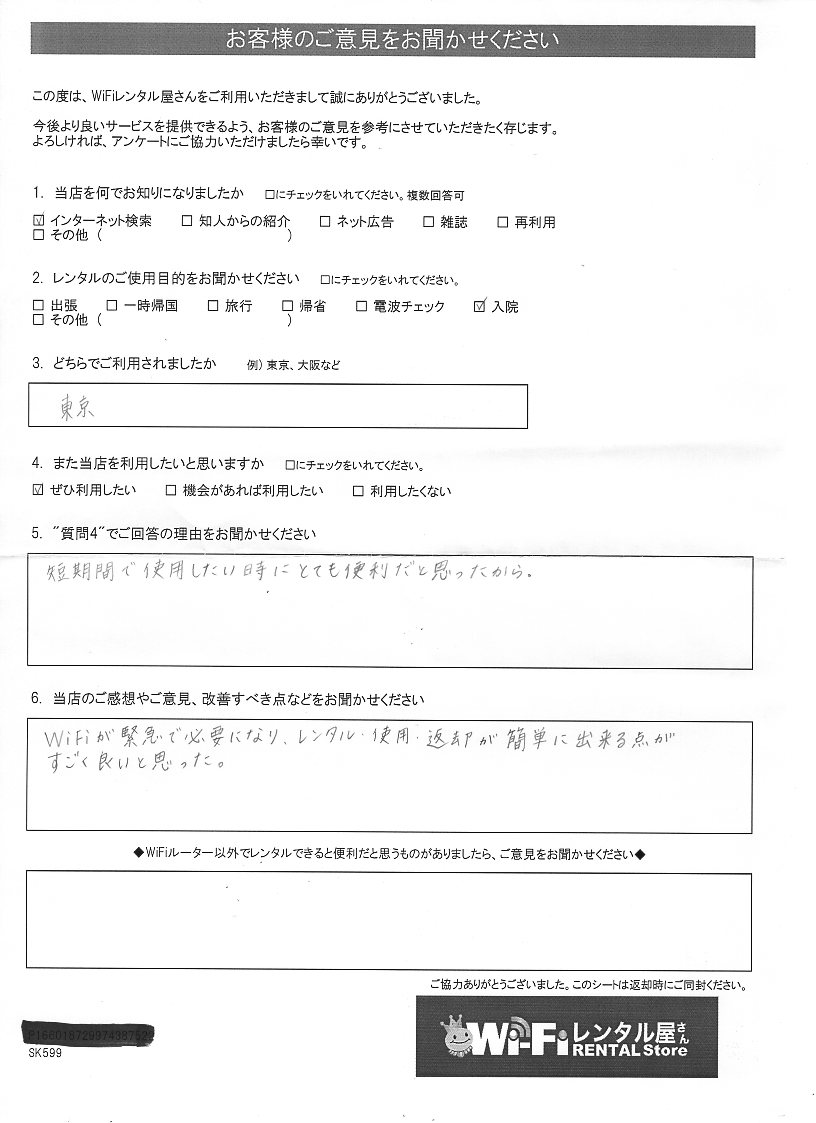 お客様のご意見をお聞かせください
この度は、WiFiレンタル屋さんをご利用いただきまして誠にありがとうございました。
今後より良いサービスを提供できるよう、お客様のご意見を参考にさせていただきたく存じます。
よろしければ、アンケートにご協力いただけましたら幸いです。
1. 当店を何でお知りになりましたか □にチェックをいれてください。複数回答可
☑ インターネット検索 □ 知人からの紹介 □ ネット広告 □ 雑誌 □ 再利用
□ その他 ( )
2. レンタルのご使用目的をお聞かせください □にチェックをいれてください。
□ 出張 □ 一時帰国 □ 旅行 □ 帰省 □ 電波チェック ☑ 入院
□ その他 ( )
3. どちらでご利用されましたか 例) 東京、大阪など
東京
4. また当店を利用したいと思いますか □にチェックをいれてください。
☑ ぜひ利用したい □ 機会があれば利用したい □ 利用したくない
5. "質問4"でご回答の理由をお聞かせください
短期間で使用したい時にとても便利だと思ったから。
6. 当店のご感想やご意見、改善すべき点などをお聞かせください
WiFiが緊急で必要になり、レンタル・使用・返却が簡単に出来る点が
すごく良いと思った。
◆WiFiルーター以外でレンタルできると便利だと思うものがありましたら、ご意見をお聞かせください◆
ご協力ありがとうございました。このシートは返却時にご同封ください。
SK599
Wi-Fiレンタル屋さん
RENTAL Store